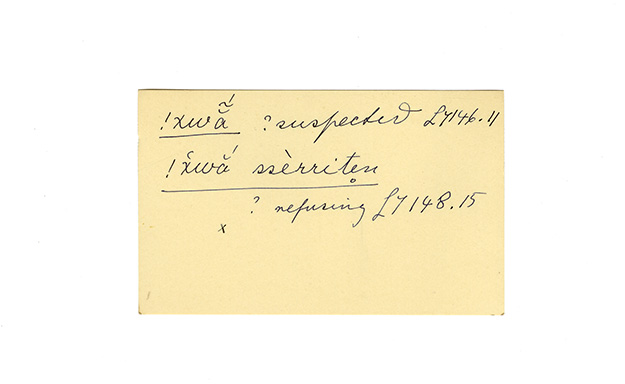 !χwā̃́ ? suspected L7146.11
!χwā̆́ ssèrritẹn
? refusing L7148.15
x